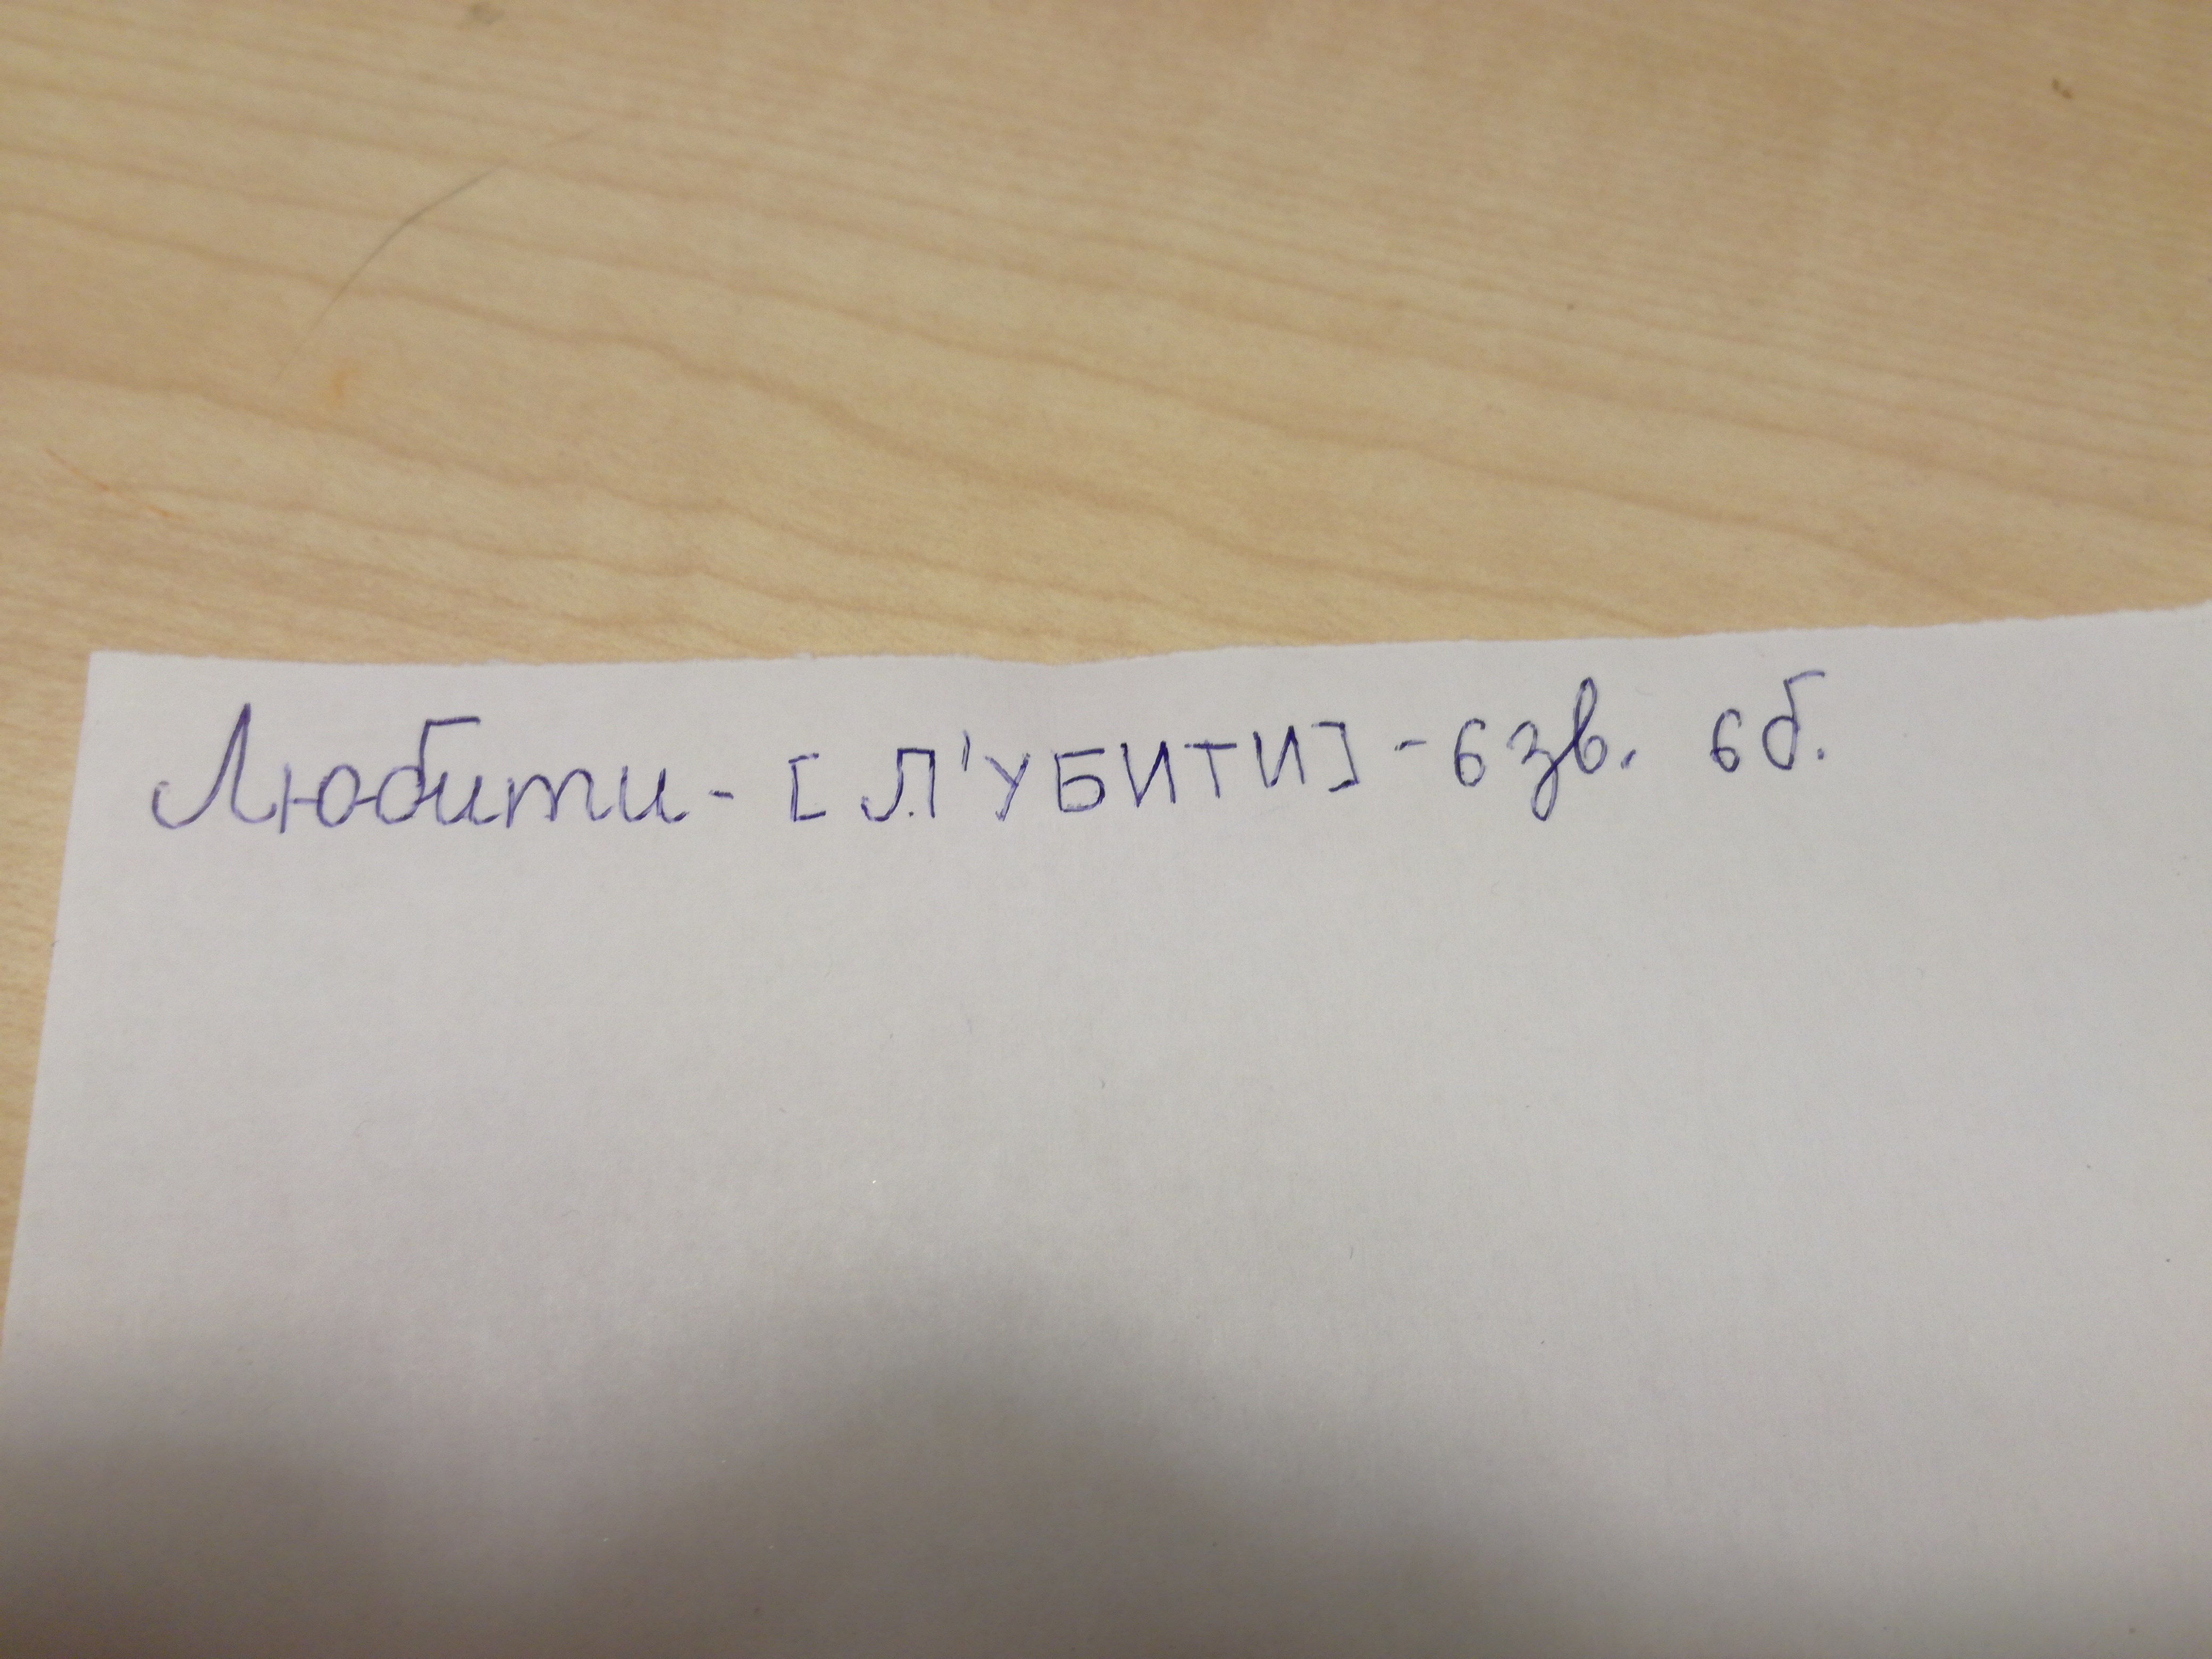 Любити - [Л'УБИТИ] - 6 зв. 6 б.